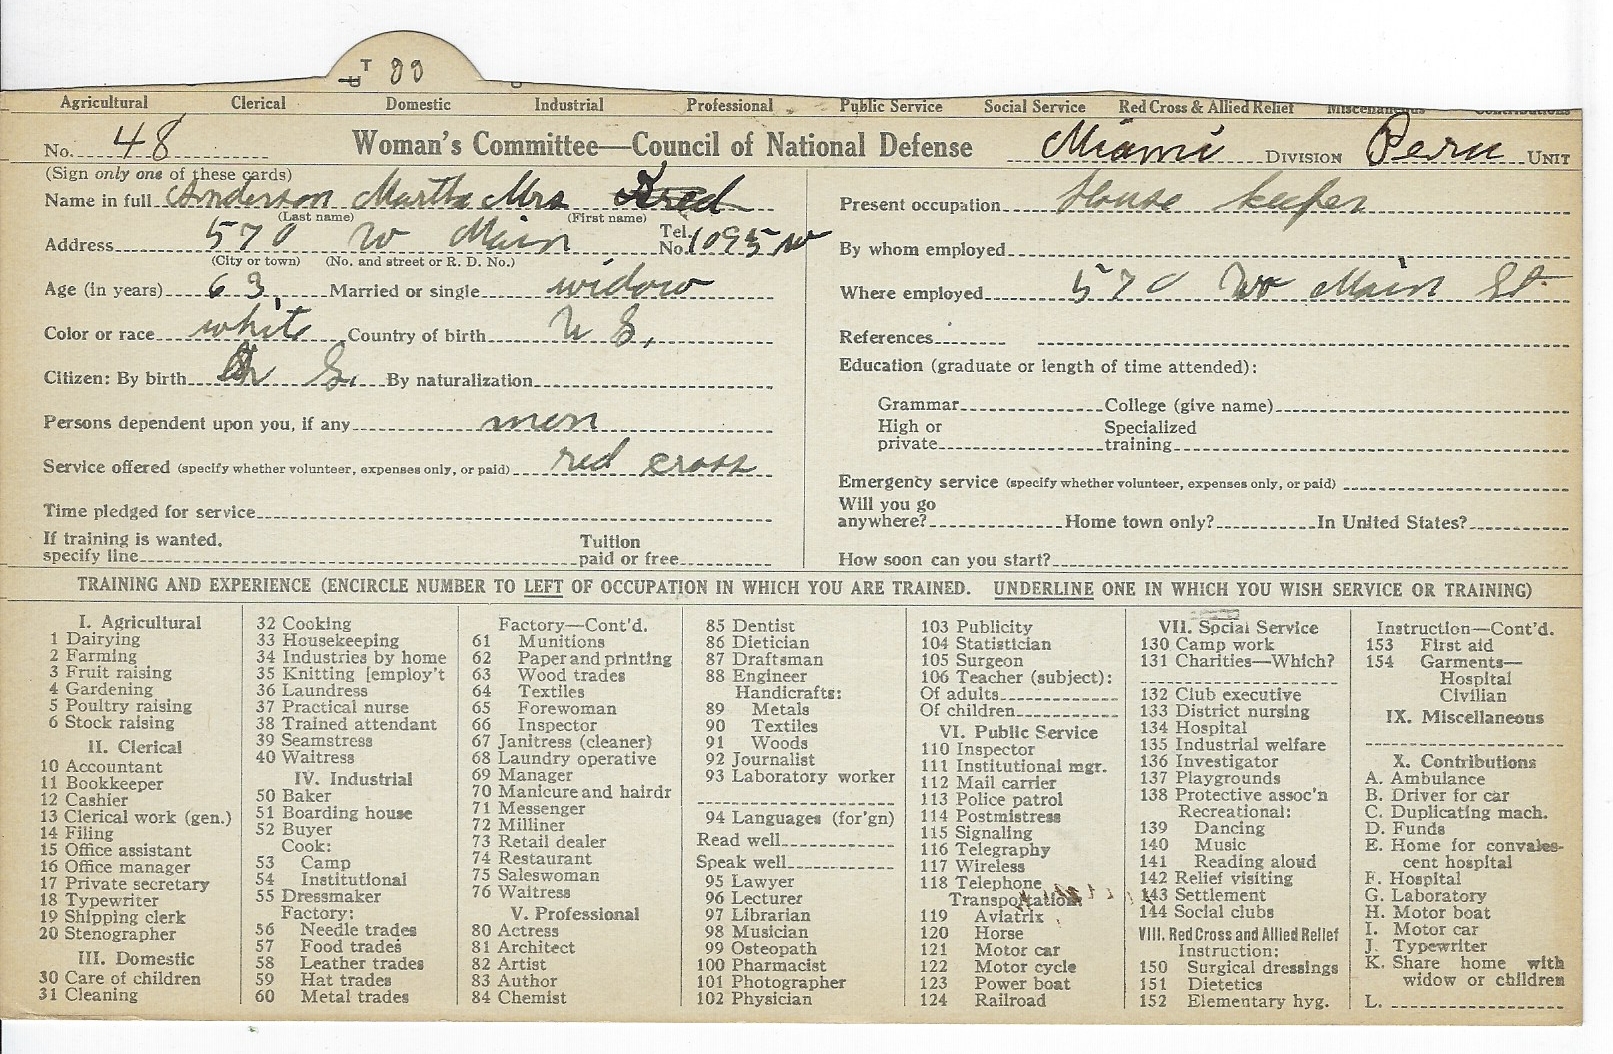 T 33
Agricultural Clerical Domestic Industrial Professional Public Service Social Service Red Cross & Allied Relief Miscellaneous Contributions
No. 48 Woman's Committee—Council of National Defense Miami DIVISION Peru UNIT
(Sign only one of these cards)
Name in full Anderson Martha Mrs Fred
(Last name) (First name)
Address 570 W Main Tel. No. 1095 W
(City or town) (No. and street or R. D. No.)
Age (in years) 63, Married or single widow
Color or race white Country of birth U S,
Citizen: By birth U S. By naturalization
Persons dependent upon you, if any non
Service offered (specify whether volunteer, expenses only, or paid) red cross
Time pledged for service
If training is wanted,
specify line Tuition paid or free
Present occupation House keeper
By whom employed
Where employed 570 W Main St
References
Education (graduate or length of time attended):
Grammar College (give name)
High or private Specialized training
Emergency service (specify whether volunteer, expenses only, or paid)
Will you go anywhere? Home town only? In United States?
How soon can you start?
TRAINING AND EXPERIENCE (ENCIRCLE NUMBER TO LEFT OF OCCUPATION IN WHICH YOU ARE TRAINED. UNDERLINE ONE IN WHICH YOU WISH SERVICE OR TRAINING)
I. Agricultural
1 Dairying
2 Farming
3 Fruit raising
4 Gardening
5 Poultry raising
6 Stock raising
II. Clerical
10 Accountant
11 Bookkeeper
12 Cashier
13 Clerical work (gen.)
14 Filing
15 Office assistant
16 Office manager
17 Private secretary
18 Typewriter
19 Shipping clerk
20 Stenographer
III. Domestic
30 Care of children
31 Cleaning
32 Cooking
33 Housekeeping
34 Industries by home
35 Knitting [employ't
36 Laundress
37 Practical nurse
38 Trained attendant
39 Seamstress
40 Waitress
IV. Industrial
50 Baker
51 Boarding house
52 Buyer
Cook:
53 Camp
54 Institutional
55 Dressmaker
Factory:
56 Needle trades
57 Food trades
58 Leather trades
59 Hat trades
60 Metal trades
Factory—Cont'd.
61 Munitions
62 Paper and printing
63 Wood trades
64 Textiles
65 Forewoman
66 Inspector
67 Janitress (cleaner)
68 Laundry operative
69 Manager
70 Manicure and hairdr
71 Messenger
72 Milliner
73 Retail dealer
74 Restaurant
75 Saleswoman
76 Waitress
V. Professional
80 Actress
81 Architect
82 Artist
83 Author
84 Chemist
85 Dentist
86 Dietician
87 Draftsman
88 Engineer
Handicrafts:
89 Metals
90 Textiles
91 Woods
92 Journalist
93 Laboratory worker
94 Languages (for'gn)
Read well
Speak well
95 Lawyer
96 Lecturer
97 Librarian
98 Musician
99 Osteopath
100 Pharmacist
101 Photographer
102 Physician
103 Publicity
104 Statistician
105 Surgeon
106 Teacher (subject):
Of adults
Of children
VI. Public Service
110 Inspector
111 Institutional mgr.
112 Mail carrier
113 Police patrol
114 Postmistress
115 Signaling
116 Telegraphy
117 Wireless
118 Telephone
Transportation:
119 Aviatrix
120 Horse
121 Motor car
122 Motor cycle
123 Power boat
124 Railroad
VII. Social Service
130 Camp work
131 Charities—Which?
132 Club executive
133 District nursing
134 Hospital
135 Industrial welfare
136 Investigator
137 Playgrounds
138 Protective assoc'n
Recreational:
139 Dancing
140 Music
141 Reading aloud
142 Relief visiting
143 Settlement
144 Social clubs
VIII. Red Cross and Allied Relief
Instruction:
150 Surgical dressings
151 Dietetics
152 Elementary hyg.
Instruction—Cont'd.
153 First aid
154 Garments—
Hospital
Civilian
IX. Miscellaneous
X. Contributions
A. Ambulance
B. Driver for car
C. Duplicating mach.
D. Funds
E. Home for convales-
cent hospital
F. Hospital
G. Laboratory
H. Motor boat
I. Motor car
J. Typewriter
K. Share home with
widow or children
L.